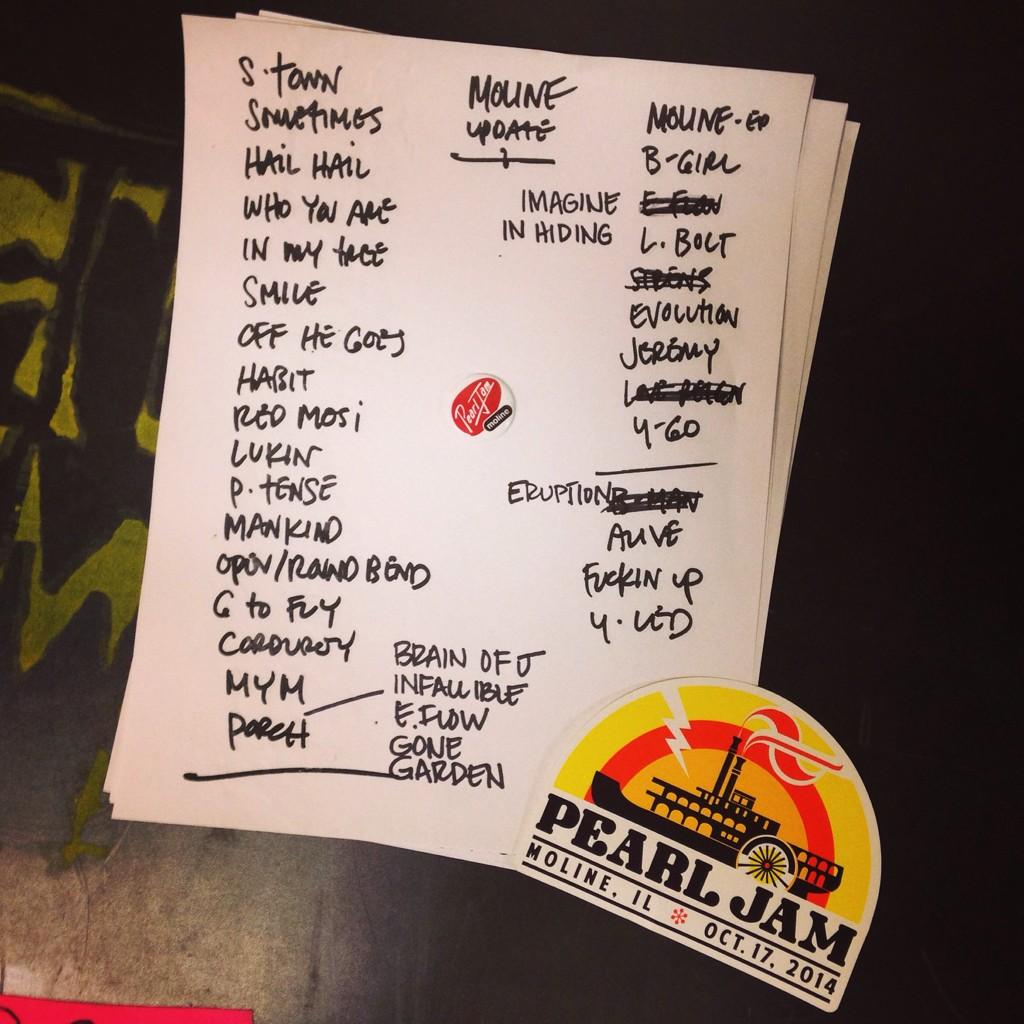 S. TOWN
SOMETIMES
HAIL HAIL
WHO YOU ARE
IN MY TREE
SMILE
OFF HE GOES
HABIT
RED MOSI
LUKIN
P. TENSE
MANKIND
OPEN/ROUND BEND
G TO FLY
CORDUROY
MYM
PORCH
BRAIN OF J
INFALLIBLE
E. FLOW
GONE
GARDEN
MOLINE
UPDATE
MOLINE-EP
B-GIRL
IMAGINE
IN HIDING
E-FLOW
L. BOLT
SIRENS
EVOLUTION
JEREMY
LOVE REIGN
Y-GO
ERUPTION
B-MAN
ALIVE
FUCKIN UP
Y. LED
Pearl Jam
moline
PEARL JAM
MOLINE, IL * OCT. 17, 2014